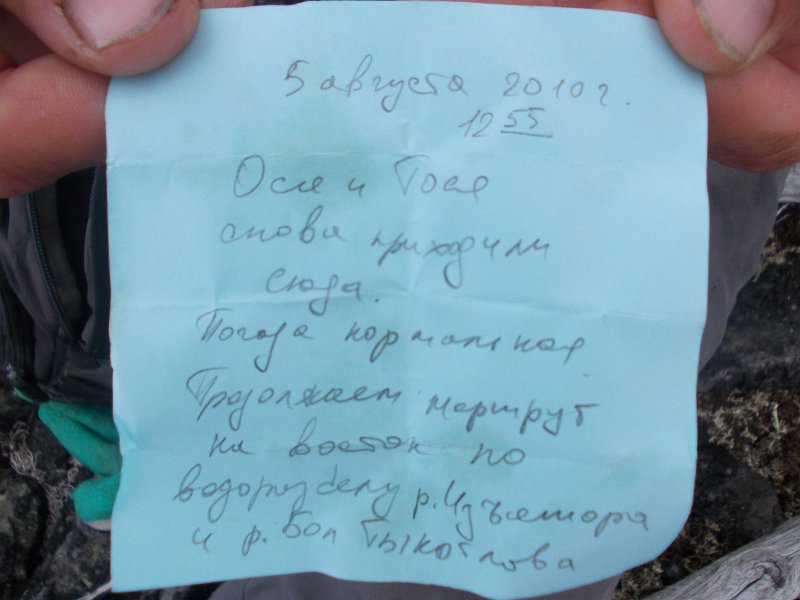 5 августа 2010 г.
12 55
Оля и Толя
снова приходили
сюда.
Погода нормальная
Продолжаем маршрут
на восток по
водоразделу р.
и р. Бол Тыкотлова